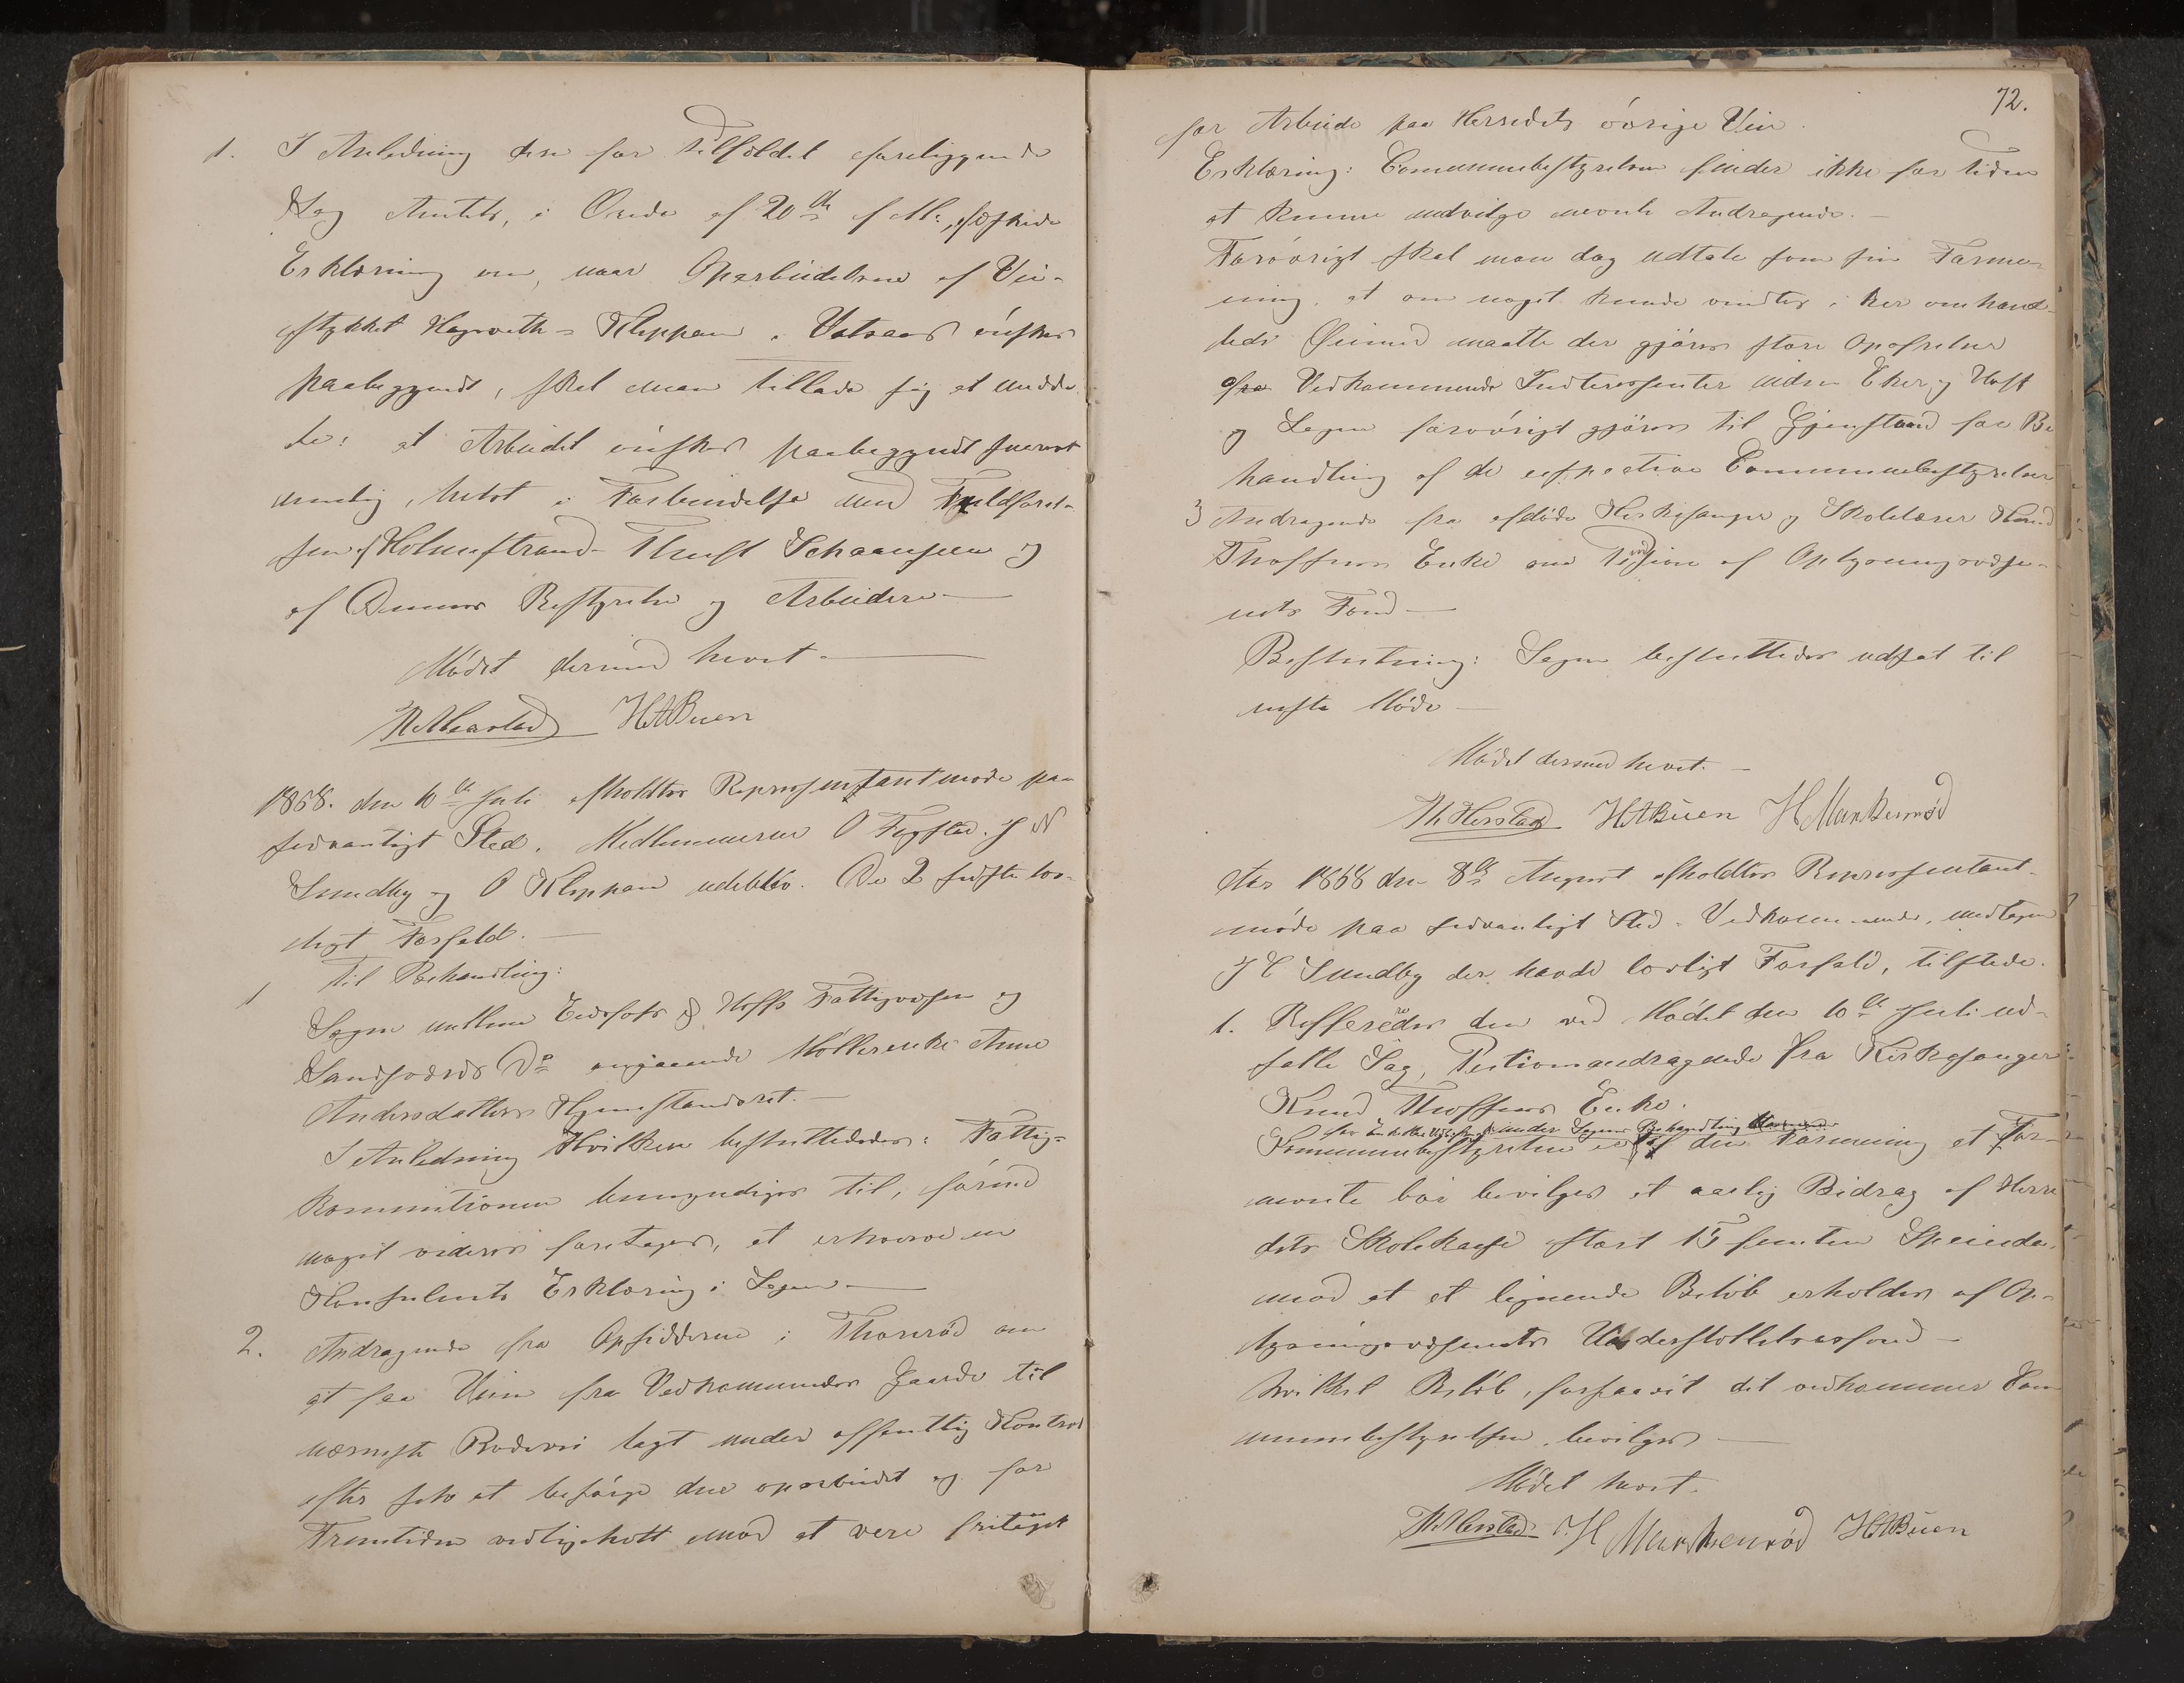 1. I Anledning den for Tilfældet foreliggende
Sag Amtets, i Ordre af 20de f. M., æskede
Erklæring om, naar Oparbeidelsen af Vei-
stykket Hagnæth - Kleppan i Vataas ønskes
paabegyndt, skal man tillade sig at medde-
le: at Arbeidet ønskes paabegyndt snarest
muelig, helst i Forbindelse med Fuldførel-
sen af Holmestrand - Schaanseen og
af Dennes Bestyrelse og Arbeidere —
Mødet dermed hævet. —
Th Herstad HABuen
1868. den 10de Juli afholdtes Representantmøde paa
sedvanligt Sted. Medlemmerne O Fegstad. J N
Sundby og O Kleppan udeblev. De 2 sidste lov-
ligt Forfald. —
Til Behandling:
1 Sagen mellem Eidsfos & Hoffs Fattigvæsen og
Sandsværds Do angaaende Møllerenke Anne
Andersdatters Hjemstavnsret. —
I Anledning Hvilken besluttededes: Fattig-
kommitionen bemyndiges til, førend
noget videre foretages, at erhverve en
Konsulents Erklæring i Sagen —
2. Andragende fra Opsidderne i Thorrød om
at faa Veien fra Vedkommendes Gaarde til
nærmeste Rodevei lagt under offentlig Kontrol
efter selv at besørge den oparbeidet og for
Fremtiden vedligeholt mod at være fritaget
72.
for Arbeide paa Herredets øvrige Veie.
Erklæring: Communebestyrelsen finder ikke for tiden
at kunne indvilge nævnte Andragende. —
Forøvrigt skal man dog udtale som sin Forme-
ning, at om noget kunde vindes i her omhand-
lede Øiemed maatte der gjøres store Opofrelser
fra Vedkommende Interessenter inden Eker og Hoff
og Sagen forøvrigt gjøres til Gjenstand for Be
handling af de respective Communebestyrelser
3 Andragende fra afdøde Kirkesanger og Skolelærer Knud
Thoffsens Enke om Pension af Oplysningsvæse-
nets Fond —
Beslutning: Sagen besluttedes udsat til
neste Møde —
Mødet dermed hævet. —
Th Herstad HABuen H Markenrød
Aar 1868 den 8de August afholdtes Representant-
møde paa sedvanligt Sted. Vedkommende, undtagen
J C Sundby der havde lovligt Forfald, tilstede.
1. Reffereredes den ved Mødet den 10de Juli ud-
satte Sag, Pentionsandragende fra Kirkesanger
Knud Thoffsens Enke.
under Sagens Behandling
Kommunebestyrelsen er af den Formening at For-
mente bør bevilges et aarlig Bidrag af Herre
dets Skolekasse stort 15 femten Speciedr.
mod at et lignende Beløb erholdes af Op-
lysningsvæsenets Understøttelsesfond —
hvilket Beløb, forsaavit det vedkommer Com
munebestyrelsen, bevilges —
Mødet hævet.
Th Herstad H Markenrød HABuen